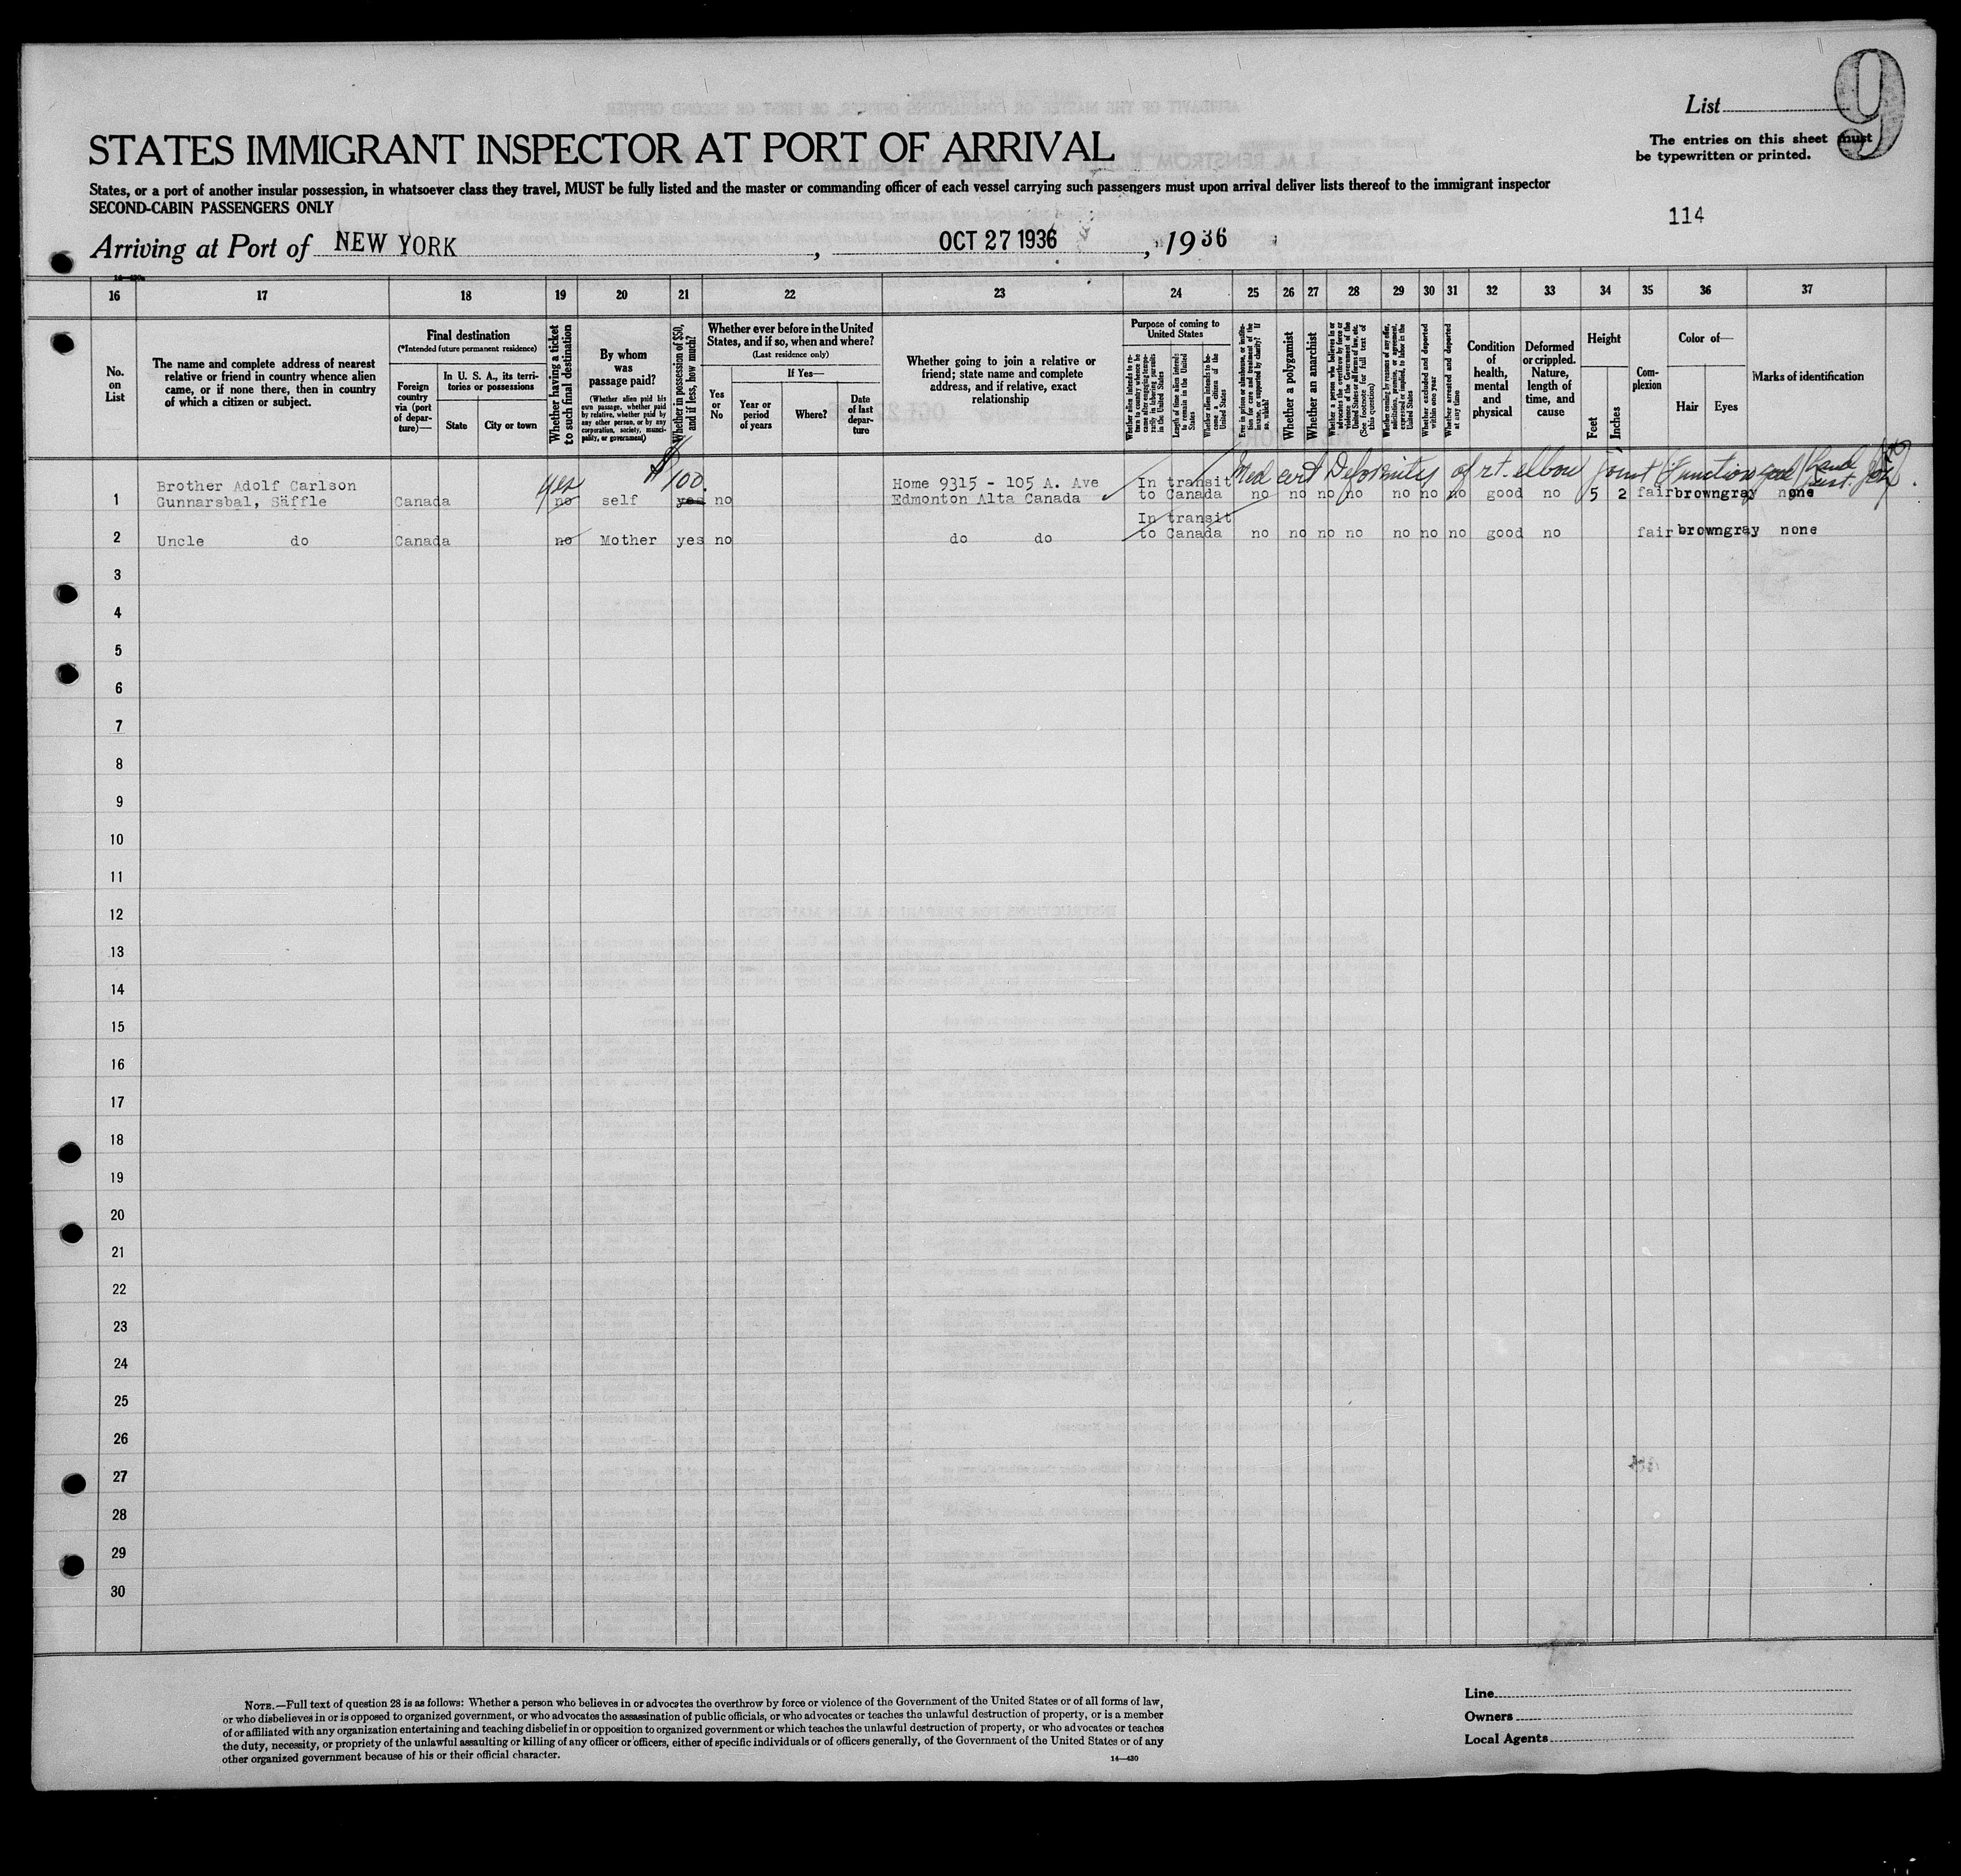 List 9
The entries on this sheet must
be typewritten or printed.
STATES IMMIGRANT INSPECTOR AT PORT OF ARRIVAL
States, or a port of another insular possession, in whatsoever class they travel, MUST be fully listed and the master or commanding officer of each vessel carrying such passengers must upon arrival deliver lists thereof to the immigrant inspector
SECOND-CABIN PASSENGERS ONLY
114
Arriving at Port of NEW YORK, OCT 27 1936, 1936
14-430
16 17 18 19 20 21 22 23 24 25 26 27 28 29 30 31 32 33 34 35 36 37
No. on List
The name and complete address of nearest
relative or friend in country whence alien
came, or if none there, then in country
of which a citizen or subject.
Final destination
(*Intended future permanent residence)
Foreign country via (port of departure)—
In U. S. A., its territories or possessions
State
City or town
Whether having a ticket to such final destination
By whom was passage paid?
(Whether alien paid his own passage, whether paid by relative, whether paid by any other person, or by any corporation, society, municipality, or government)
Whether in possession of $50, and if less, how much?
Whether ever before in the United States, and if so, when and where?
(Last residence only)
Yes or No
If Yes—
Year or period of years
Where?
Date of last departure
Whether going to join a relative or
friend; state name and complete
address, and if relative, exact
relationship
Purpose of coming to United States
Whether alien intends to return to country whence he came after engaging temporarily in laboring pursuits in the United States
Length of time alien intends to remain in the United States
Whether alien intends to become a citizen of the United States
Ever in prison or almshouse, or institution for care and treatment of the insane, or supported by charity? If so, which?
Whether a polygamist
Whether an anarchist
Whether a person who believes in or advocates the overthrow by force or violence of the Government of the United States or all forms of law, etc. (See footnote for full text of this question)
Whether coming by reason of any offer, solicitation, promise, or agreement, expressed or implied, to labor in the United States
Whether excluded and deported within one year
Whether arrested and deported at any time
Condition of health, mental and physical
Deformed or crippled. Nature, length of time, and cause
Height
Feet
Inches
Complexion
Color of—
Hair
Eyes
Marks of identification
Med cert Deformity of rt. elbow joint (Function good)
yes $100.
Brother Adolf Carlson Home 9315 - 105 A. Ave In transit
1 Gunnarsbal, Säffle Canada no self yes no Edmonton Alta Canada to Canada no no no no no no no good no 5 2 fair brown gray none
In transit
2 Uncle do Canada no Mother yes no do do to Canada no no no no no no no good no fair brown gray none
3
4
5
6
7
8
9
10
11
12
13
14
15
16
17
18
19
20
21
22
23
24
25
26
27
28
29
30
NOTE.—Full text of question 28 is as follows: Whether a person who believes in or advocates the overthrow by force or violence of the Government of the United States or of all forms of law,
or who disbelieves in or is opposed to organized government, or who advocates the assassination of public officials, or who advocates or teaches the unlawful destruction of property, or is a member
of or affiliated with any organization entertaining and teaching disbelief in or opposition to organized government or which teaches the unlawful destruction of property, or who advocates or teaches
the duty, necessity, or propriety of the unlawful assaulting or killing of any officer or officers, either of specific individuals or of officers generally, of the Government of the United States or of any
other organized government because of his or their official character.
14—430
Line
Owners
Local Agents